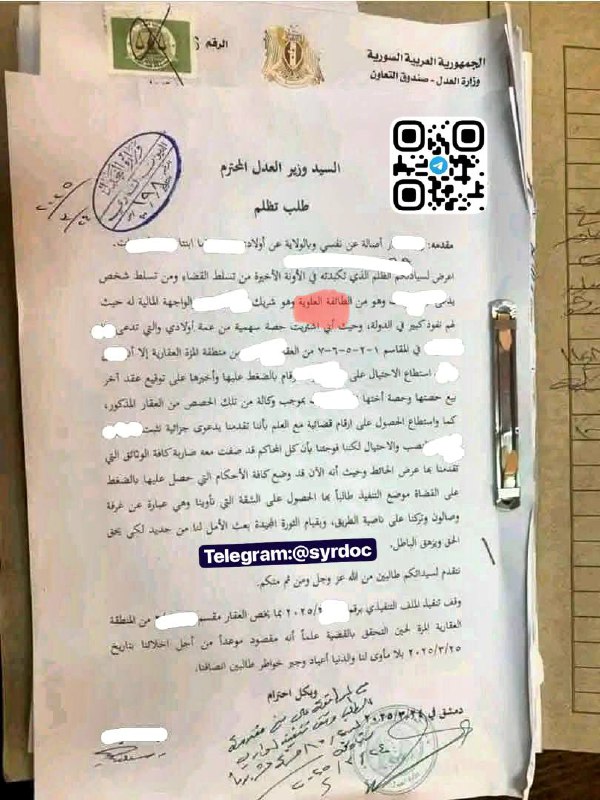 الجمهورية العربية السورية
وزارة العدل - صندوق التعاون
الرقم
السيد وزير العدل المحترم
طلب تظلم
مقدمه: أصالة عن نفسي وبالولاية عن أولادي
اعرض لسيادتكم الظلم الذي تكبدته في الأونة الأخيرة من تسلط القضاء ومن تسلط شخص
يدعى وهو من الطائفة العلوية وهو شريك الواجهة المالية له حيث
لهم نفوذ كبير في الدولة، وحيث أني اشتريت حصة سهمية من عمة أولادي والتي تدعى
في المقاسم ١-٢-٥-٦-٧ من العقار من منطقة المزة العقارية إلا أن
استطاع الاحتيال على وقام بالضغط عليها وأخبرها على توقيع عقد آخر
بيع حصتها وحصة أختها بموجب وكالة من تلك الحصص من العقار المذكور،
كما واستطاع الحصول على ارقام قضائية مع العلم بأننا تقدمنا بدعوى جزائية تثبت
النصب والاحتيال لكننا فوجئنا بأن كل المحاكم قد صفت معه ضاربة كافة الوثائق التي
تقدمنا بها عرض الحائط وحيث أنه الآن قد وضع كافة الأحكام التي حصل عليها بالضغط
على القضاة موضع التنفيذ طالباً بها الحصول على الشقة التي تأوينا وهي عبارة عن غرفة
وصالون وتركنا على ناصية الطريق، وبقيام الثورة المجيدة بعث الأمل لنا من جديد لكي يحق
الحق ويزهق الباطل.
Telegram:@syrdoc
نتقدم لسيادتكم طالبين من الله عز وجل ومن ثم منكم.
وقف تنفيذ الملف التنفيذي برقم /٢٠٢٥ بما يخص العقار مقسم من المنطقة
العقارية المزة لحين التحقق بالقضية علماً أنه مقصود موعداً من أجل اخلائنا بتاريخ
٢٠٢٥/٣/٢٥ بلا مأوى لنا والدنيا أعياد وجبر خواطر طالبين انصافنا.
وبكل احترام
دمشق في ٢٠٢٥/٣/٢٤